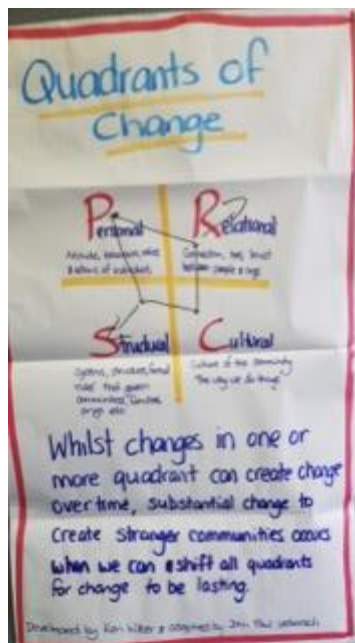 Quadrants of
Change
Personal
Relational
Attitude, behaviour, values
& actions of individuals
Connection, ties, trust
between people & orgs
Structural
Cultural
Systems, structures, formal
rules that govern
communities, families,
orgs etc.
Culture of the community
"The way we do things"
Whilst changes in one or
more quadrant can create change
over time, substantial change to
create stronger communities occurs
when we can shift all quadrants
for change to be lasting.
Developed by Ken Wilber & adapted by John Paul Lederach